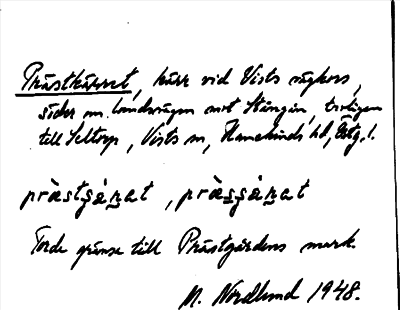 Prästkärret, kärr vid Vists vägkors,
söder om landsvägen mot Stångån, troligen
till Seltorp, Vists sn, Hanekinds hd, Östg. l.
prästʂä́ʀ̣at, präʂʂä́ʀ̣at
Torde gränsa till Prästgårdens mark.
N. Nordlund 1948.